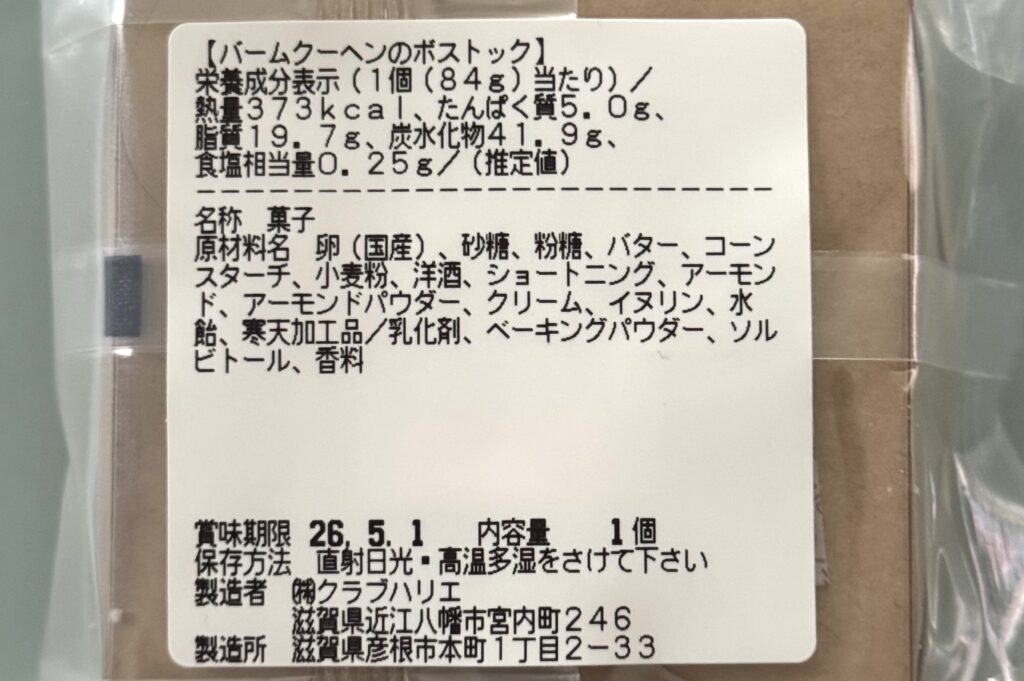 【バームクーヘンのボストック】
栄養成分表示（1個（84g）当たり）／
熱量373kcal、たんぱく質5.0g、
脂質19.7g、炭水化物41.9g、
食塩相当量0.25g／（推定値）
名称　菓子
原材料名　卵（国産）、砂糖、粉糖、バター、コーン
スターチ、小麦粉、洋酒、ショートニング、アーモン
ド、アーモンドパウダー、クリーム、イヌリン、水
飴、寒天加工品／乳化剤、ベーキングパウダー、ソル
ビトール、香料
賞味期限 26.5.1　内容量　1個
保存方法　直射日光・高温多湿をさけて下さい
製造者　㈱クラブハリエ
滋賀県近江八幡市宮内町246
製造所　滋賀県彦根市本町1丁目2－33